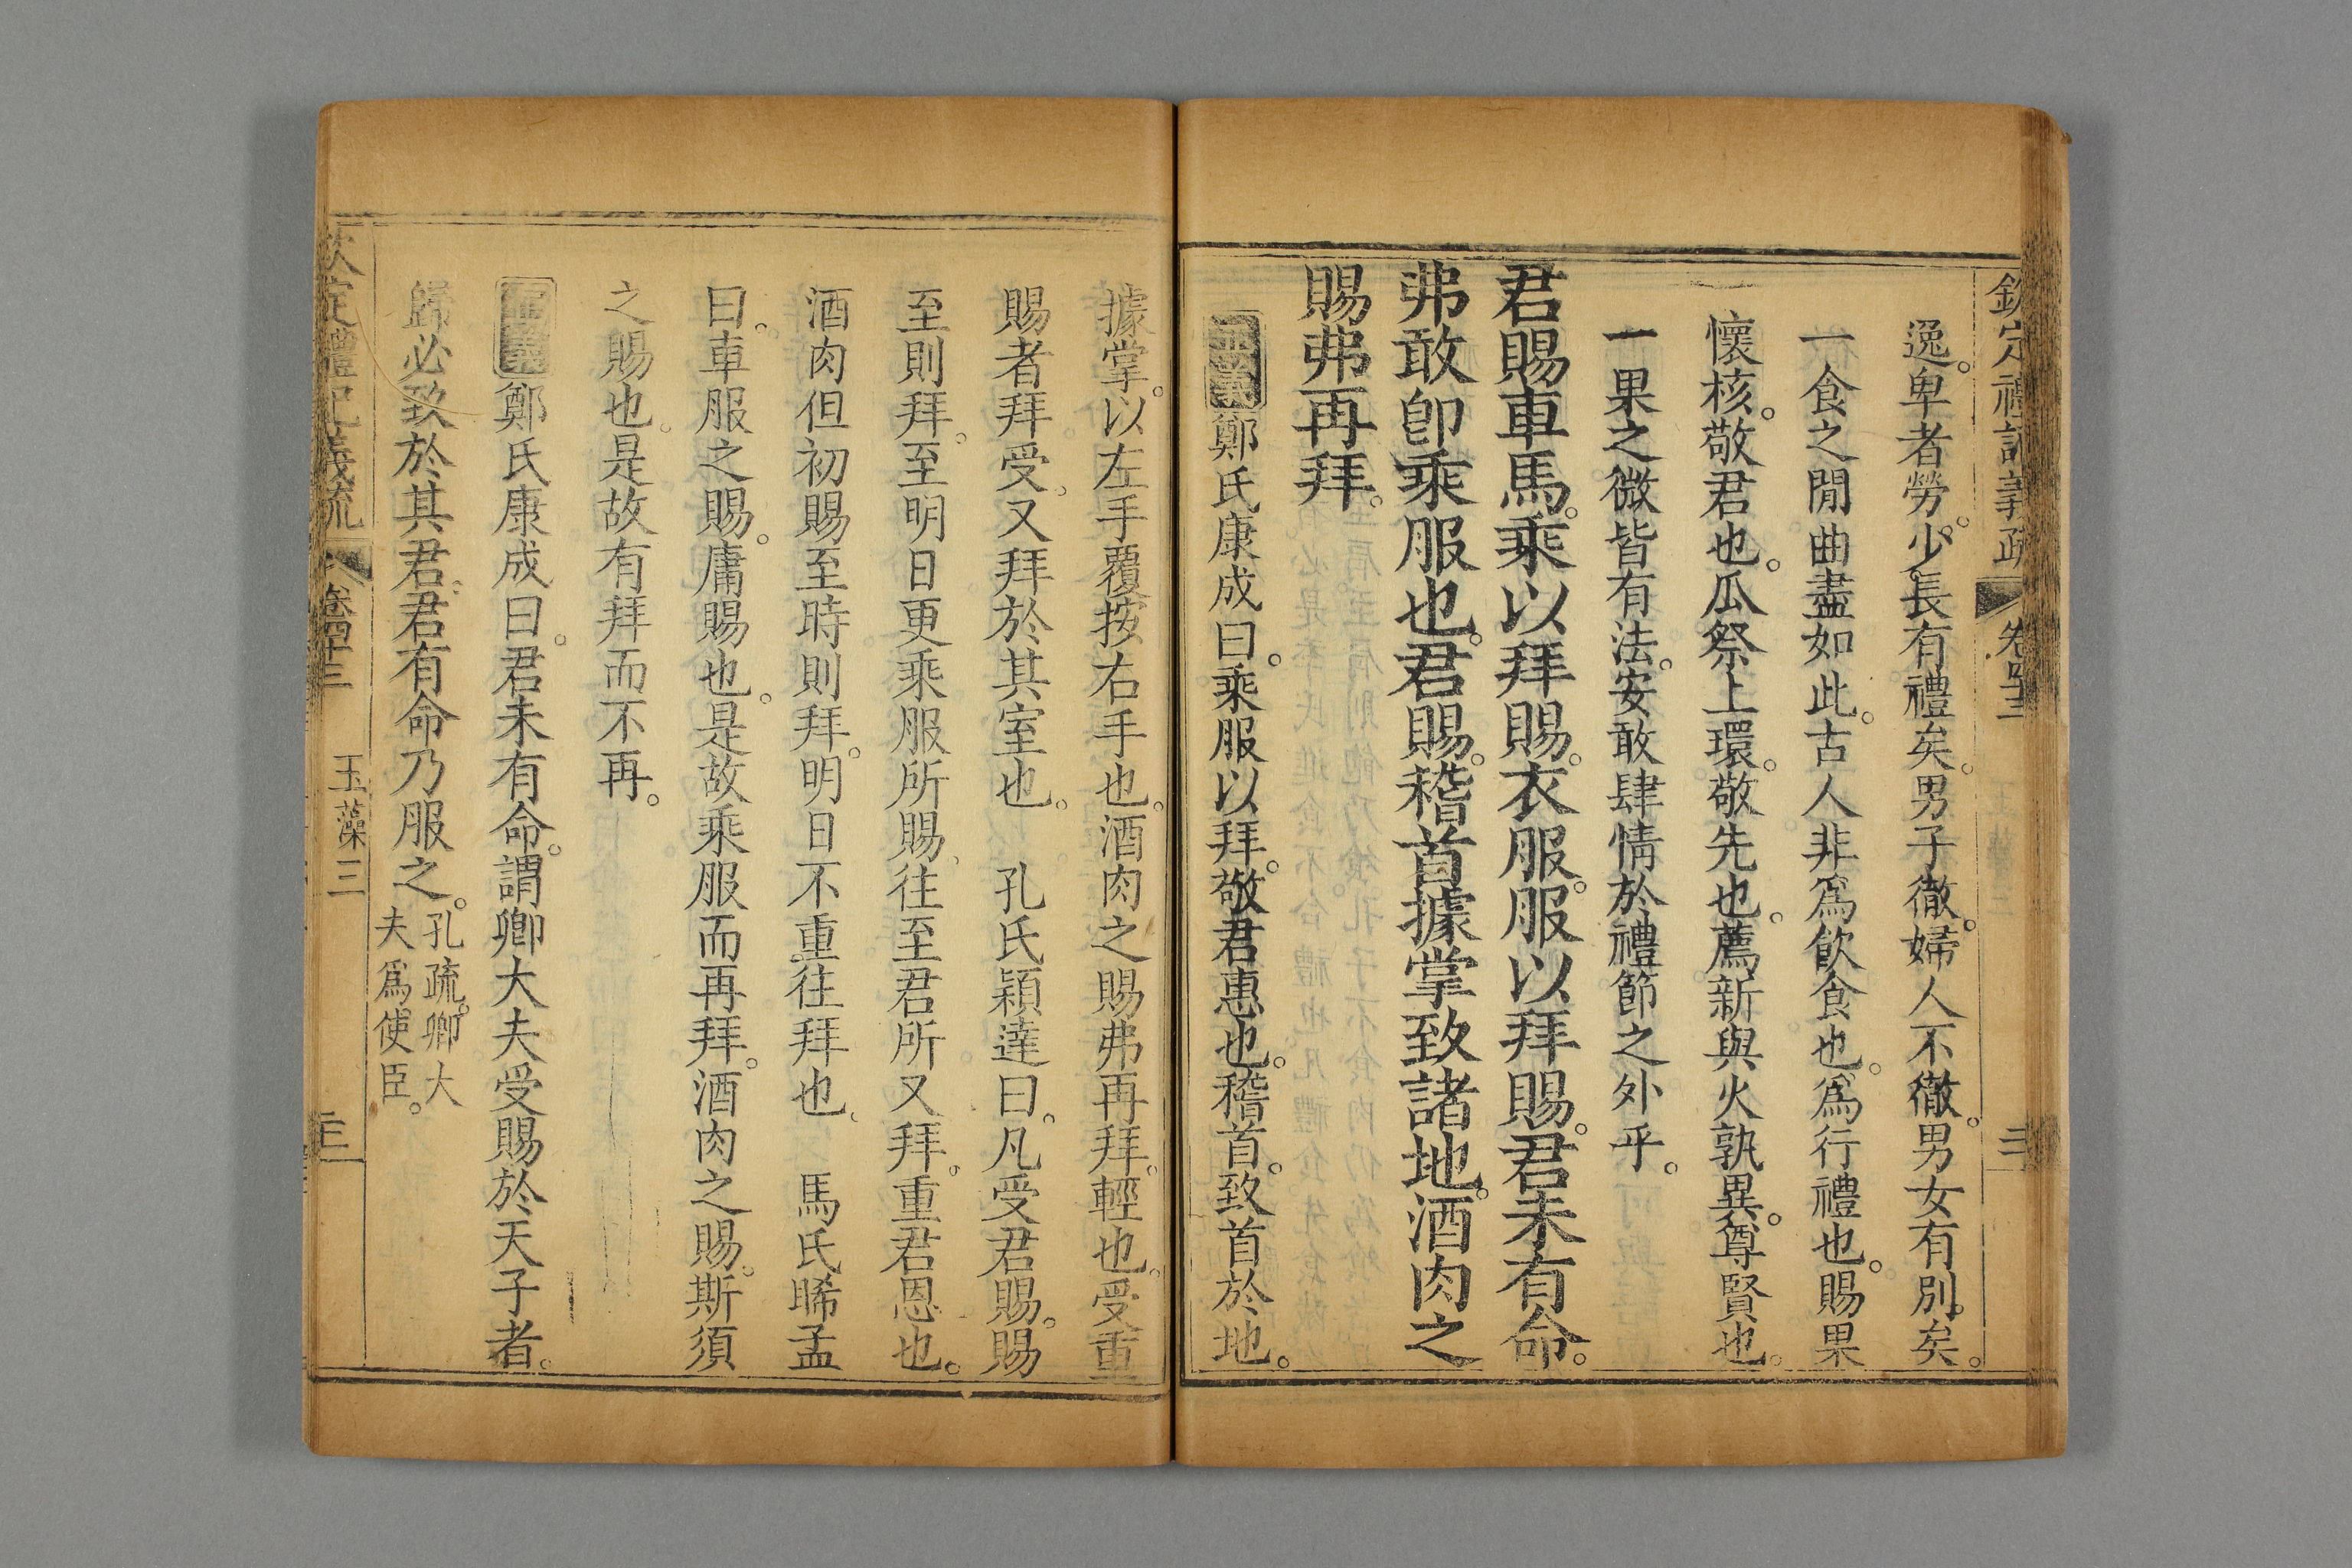 欽定禮記義疏 卷四十三 三
逸。卑者勞。少長有禮矣。男子徹。婦人不徹。男女有別矣。
一食之閒曲盡如此。古人非爲飲食也。爲行禮也。賜果
懷核。敬君也。瓜祭上環。敬先也。薦新與火孰異。尊賢也。
一果之微皆有法。安敢肆情於禮節之外乎。
君賜車馬。乘以拜賜。衣服。服以拜賜。君未有命。
弗敢卽乘服也。君賜。稽首據掌致諸地。酒肉之
賜弗再拜。
正義鄭氏康成曰。乘服以拜。敬君惠也。稽首。致首於地。
據掌。以左手覆按右手也。酒肉之賜弗再拜。輕也。受重
賜者拜受。又拜於其室也。 孔氏穎達曰。凡受君賜。賜
至則拜。至明日更乘服所賜、往至君所又拜。重君恩也。
酒肉但初賜至時則拜。明日不重往拜也、 馬氏睎孟
曰。車服之賜。庸賜也。是故乘服而再拜。酒肉之賜。斯須
之賜也。是故有拜而不再。
正義鄭氏康成曰。君未有命。謂卿大夫受賜於天子者。
歸必致於其君。君有命乃服之。孔疏。卿大
夫爲使臣。
欽定禮記義疏 卷四十三 玉藻三 三